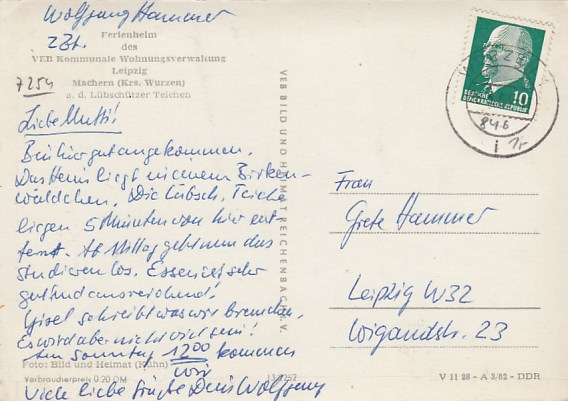 Wolfgang Hammer
zZt.
Ferienheim
des
VEB Kommunale Wohnungsverwaltung
Leipzig
Machern (Krs. Wurzen)
a. d. Lübschützer Teichen
7254
Liebe Mutti!
Bin hier gut angekommen.
Das Heim liegt in einem Birken-
wäldchen. Die Lübsch. Teiche
liegen 5 Minuten von hier ent-
fernt. Ab Mittag geht nun das
Studieren los. Essen ist sehr
gut und ausreichend!
Gisel schreibt was wir brauchen.
Es wird aber nicht viel sein!
Am Sonntag 1200 kommen
wir
Viele liebe Grüße Dein Wolfgang
Foto: Bild und Heimat (Kühn)
Verbraucherpreis 0,20 DM
VEB BILD UND HEIMAT REICHENBACH I. V.
DEUTSCHE
DEMOKRATISCHE REPUBLIK
10
Frau
Grete Hammer
Leipzig W32
Wigandstr. 23
V 11 28 - A 3/62 - DDR